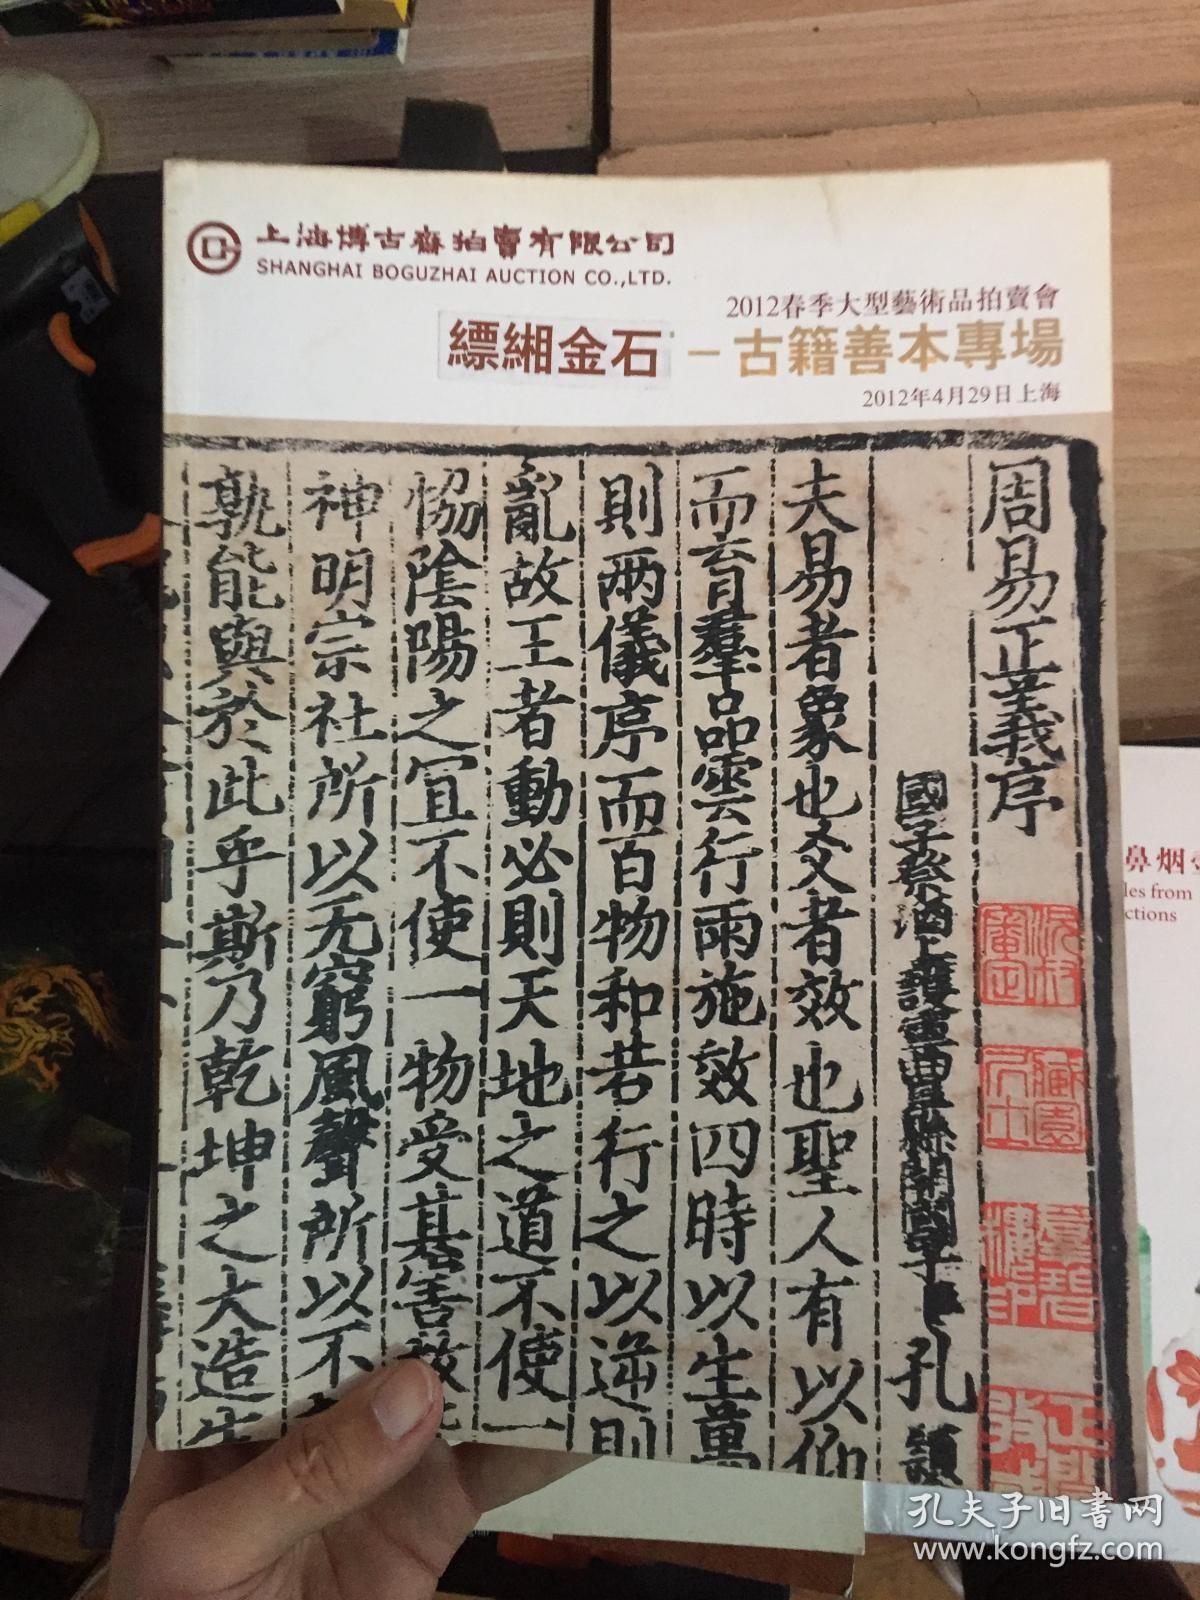 上海博古齋拍賣有限公司
SHANGHAI BOGUZHAI AUCTION CO.,LTD.
2012春季大型藝術品拍賣會
縹緗金石 – 古籍善本專場
2012年4月29日上海
周易正義序
國子祭酒上護軍曲阜縣開國子臣孔穎
夫易者象也爻者效也聖人有以仰
而言日羣品雲行雨施效四時以生萬
則兩儀序而百物和若行之以逆則
亂故王者動必則天地之道不使一
恊陰陽之宜不使一物受其害故
神明宗社所以无窮風聲所以不
孰能與於此乎斯乃乾坤之大造生
鼻烟
les from
ctions
孔夫子旧书网
www.kongfz.com